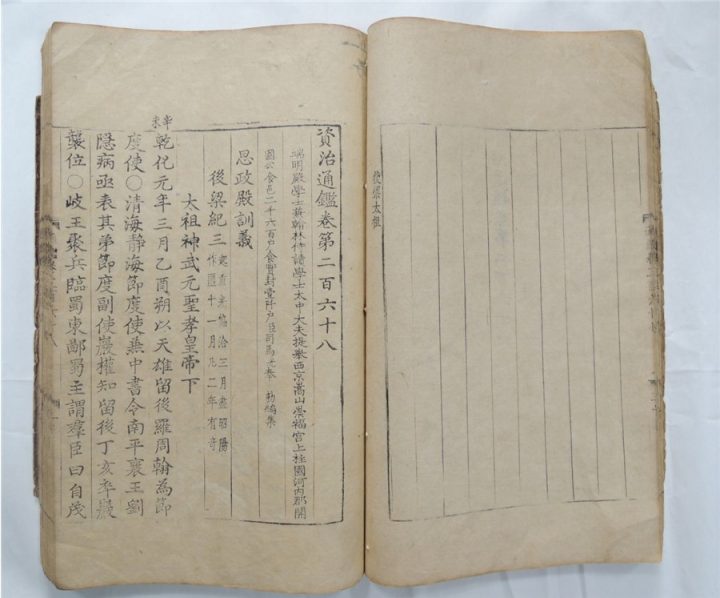 後梁太祖
資治通鑑卷第二百六十八
端明殿學士兼翰林侍讀學士太中大夫提擧西京嵩山崇福宮上柱國河內郡開
國公食邑二千六百戶食實封壹阡戶臣司馬光奉 勑編集
思政殿訓義
後梁紀三 起重光協洽三月盡昭陽
作噩十一月凡二年有奇
太祖神武元聖孝皇帝下
辛未 乾化元年三月乙酉朔以天雄留後羅周翰為節
度使○清海靜海節度使兼中書令南平襄王劉
隱病亟表其弟節度副使巖權知留後丁亥卒巖
襲位○岐王聚兵臨蜀東鄙蜀主謂羣臣曰自茂